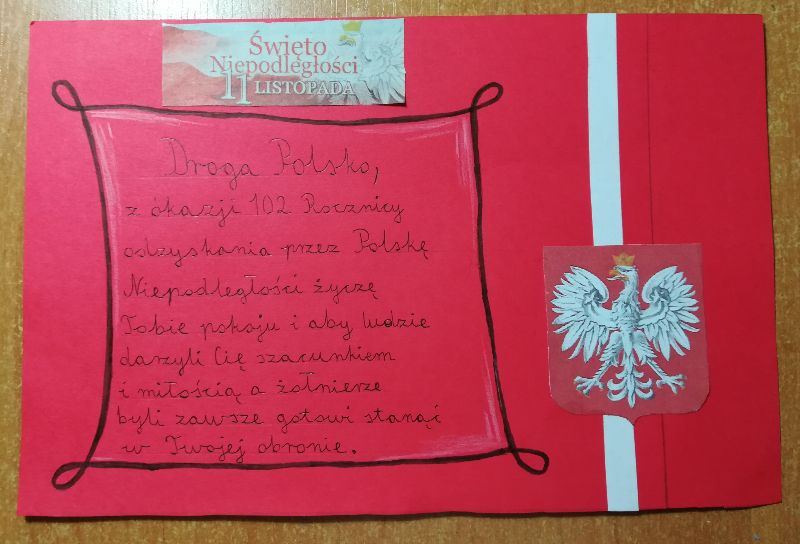 Święto
Niepodległości
11 LISTOPADA
Droga Polsko,
z okazji 102 Rocznicy
odzyskania przez Polskę
Niepodległości życzę
Tobie pokoju i aby ludzie
darzyli Cię szacunkiem
i miłością a żołnierze
byli zawsze gotowi stanąć
w Twojej obronie.